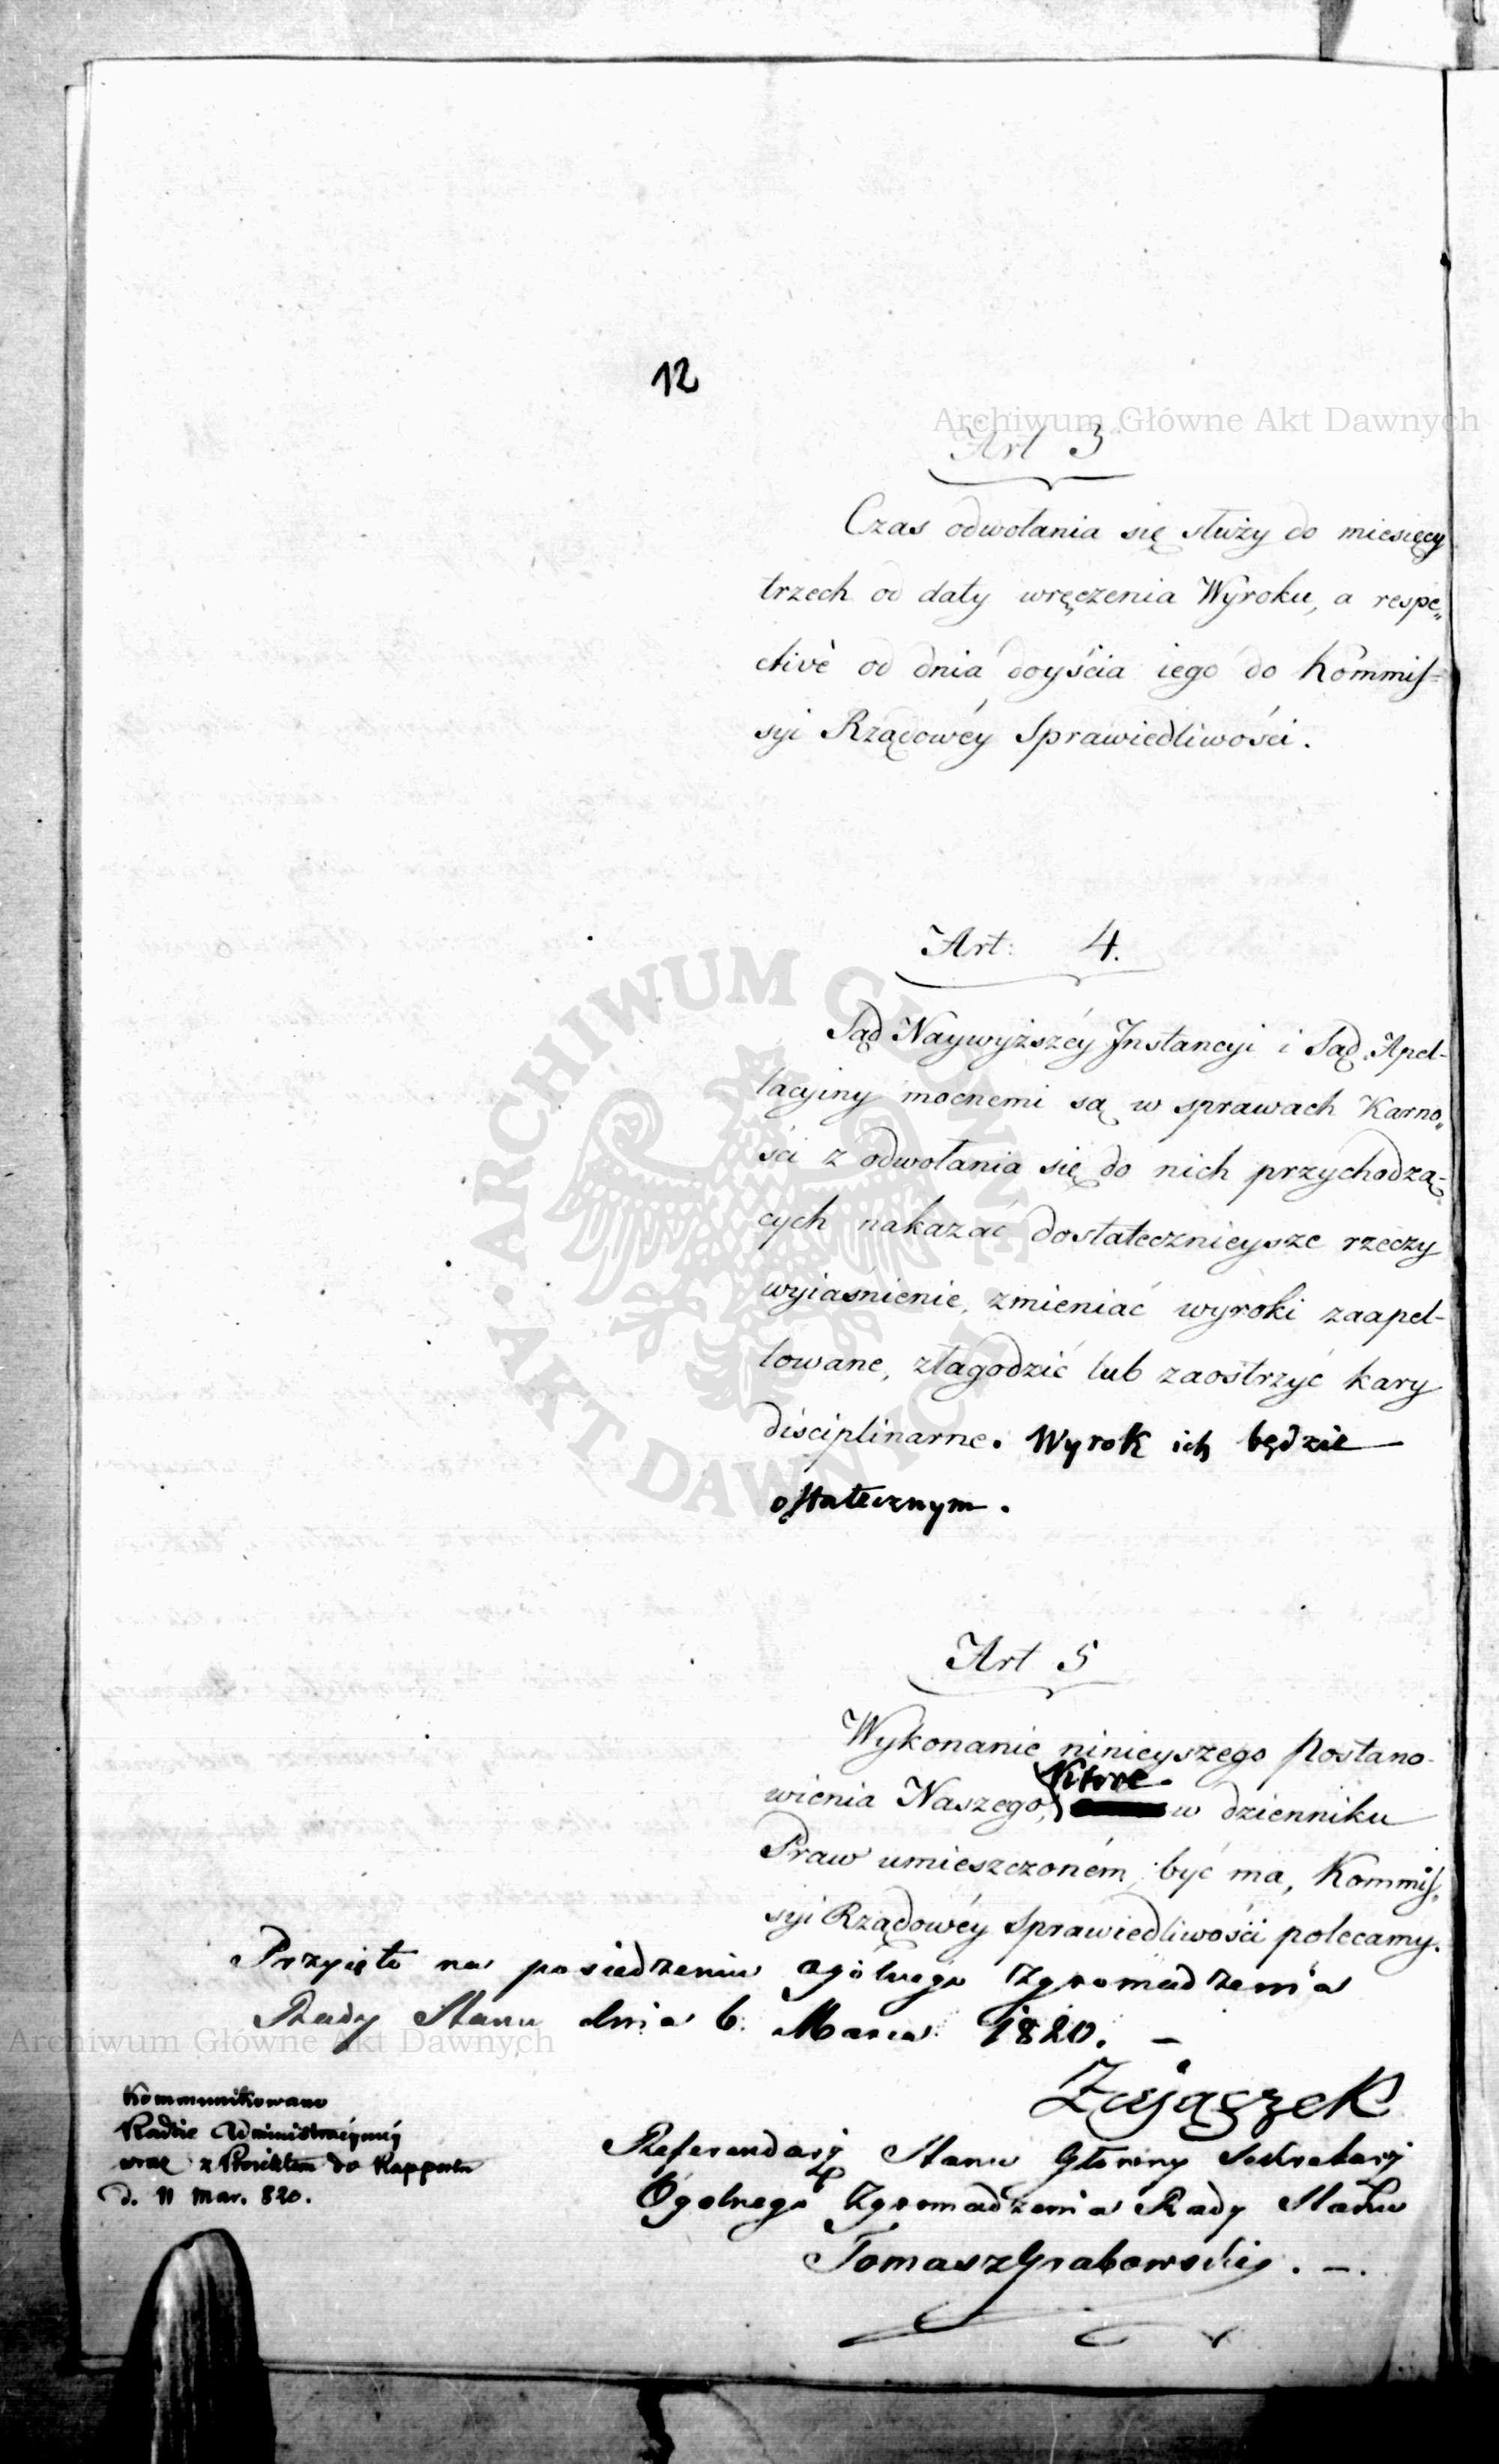 12
Archiwum Główne Akt Dawnych
Art 3
Czas odwołania się służy do miesięcy
trzech od daty wręczenia Wyroku, a respe„
ctivè od dnia doyścia iego do Kommis-
syi Rządowéy Sprawiedliwości.
Art: 4.
Sąd Naywyższéy Instancyi i Sąd Apel-
lacyiny mocnemi są w sprawach Karno„
ści z odwołania się do nich przychodzą-
cych nakazać dostatecznieysze rzeczy
wyiaśnienie, zmieniać wyroki zaapel-
lowane, złagodzić lub zaostrzyć kary
disciplinarne. Wyrok ich będzie
ostatecznym.
ARCHIWUM GŁÓWNE AKT DAWNYCH
Art 5
Wykonanie ninieyszego Postano-
które
wienia Naszego, w dzienniku
Praw umieszczoném być ma, Kommis„
syi Rządowéy Sprawiedliwości polecamy.
Przyięto na posiedzeniu ogólnego Zgromadzenia
Rady Stanu dnia 6. Marca 1820. –
Archiwum Główne Akt Dawnych
Zajączek
Kommunikowano
Radzie Administracyinéy
wraz z Proiektem do Rapportu
d. 11 Mar. 820.
Referendarz Stanu Główny Sekretarz
Ogolnego Zgromadzenia Rady Stanu
Tomasz Grabowski. –.